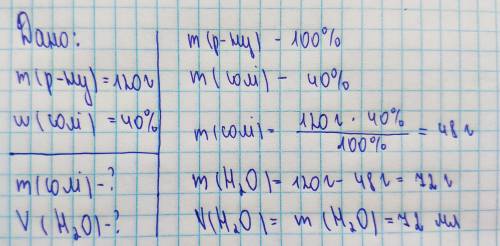 Дано:
m(р-ну) = 120г
w(солі) = 40%
m(солі) - ?
V(H₂O) - ?
m(р-ну) - 100%
m(солі) - 40%
m(солі) = 120г · 40% / 100% = 48г
m(H₂O) = 120г - 48г = 72г
V(H₂O) = m(H₂O) = 72 мл